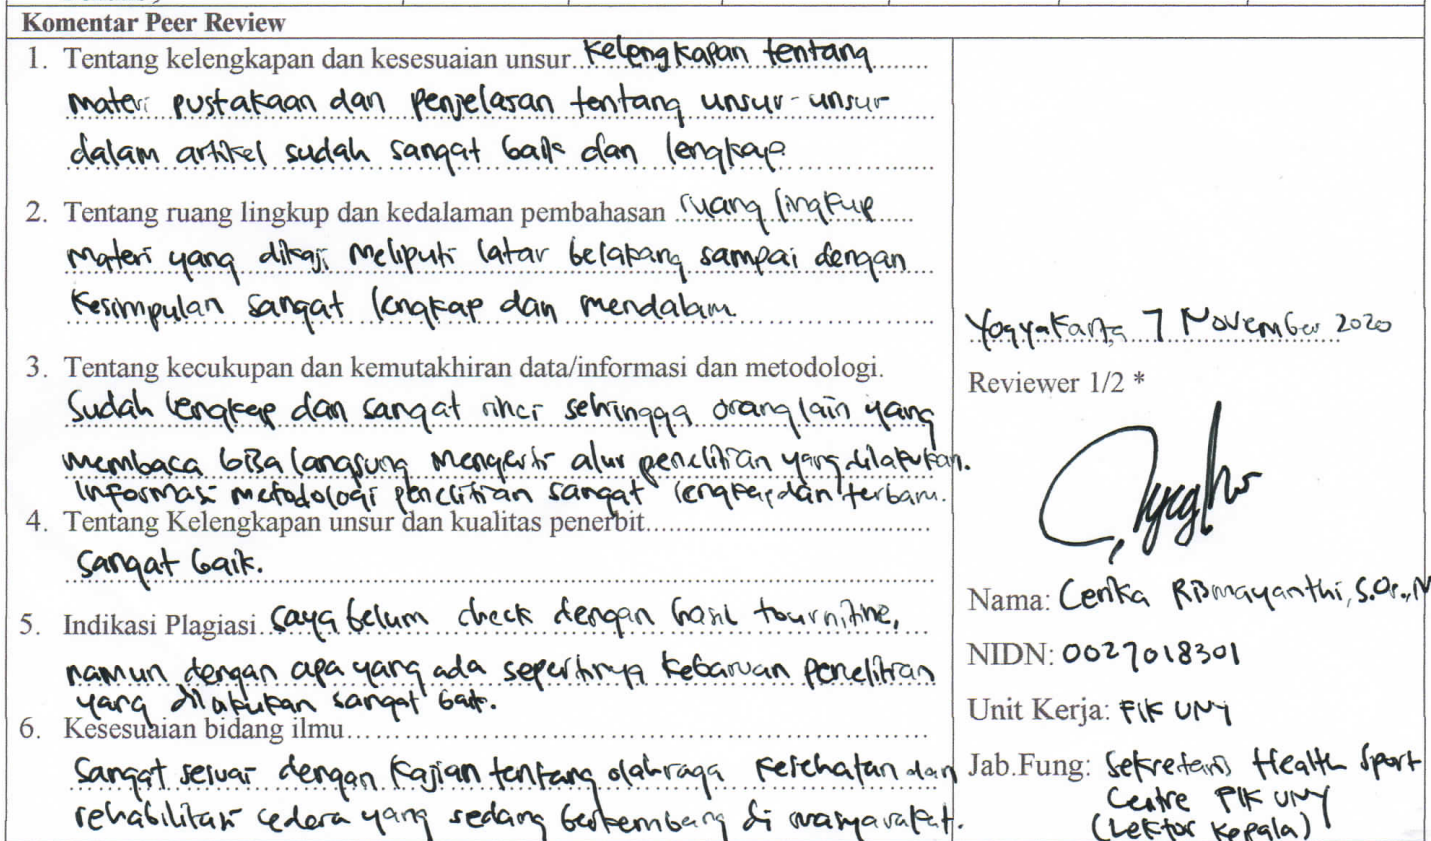 Komentar Peer Review
1. Tentang kelengkapan dan kesesuaian unsur kelengkapan tentang
materi pustakaan dan penjelasan tentang unsur-unsur
dalam artikel sudah sangat baik dan lengkap
2. Tentang ruang lingkup dan kedalaman pembahasan ruang lingkup
materi yang dikaji meliputi latar belakang sampai dengan
kesimpulan sangat lengkap dan mendalam.
3. Tentang kecukupan dan kemutakhiran data/informasi dan metodologi.
Sudah lengkap dan sangat rinci sehingga orang lain yang
membaca bisa langsung mengerti alur penelitian yang dilakukan.
Informasi metodologi penelitian sangat lengkap dan terbaru.
4. Tentang Kelengkapan unsur dan kualitas penerbit
Sangat baik.
5. Indikasi Plagiasi Saya belum check dengan hasil tournitine,
namun dengan apa yang ada sepertinya kebaruan penelitian
yang dilakukan sangat baik.
6. Kesesuaian bidang ilmu
Sangat sesuai dengan kajian tentang olahraga kesehatan dan
rehabilitasi cedera yang sedang berkembang di masyarakat.
Yogyakarta, 7 November 2020
Reviewer 1/2 *
Nama: Cerika Rismayanthi, S.Or.,
NIDN: 0027018301
Unit Kerja: FIK UNY
Jab.Fung: Sekretaris Health Sport
Centre FIK UNY
(Lektor Kepala)